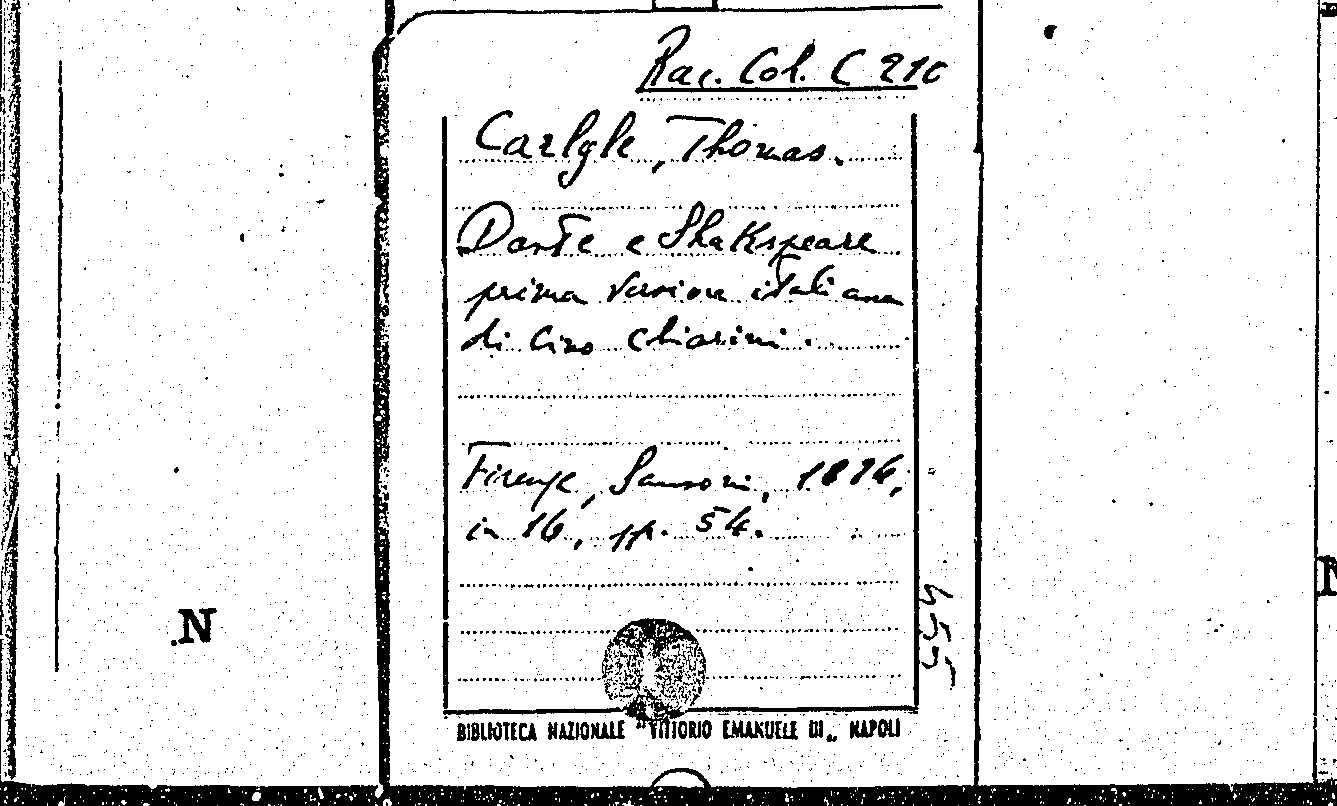 Rac. Col. C 210
Carlyle, Thomas.
Dante e Shakspeare
prima versione italiana
di Cino Chiarini.
Firenze, Sansoni, 1896,
in 16, pp. 54.
455
N
BIBLIOTECA NAZIONALE "VITTORIO EMANUELE III„ NAPOLI